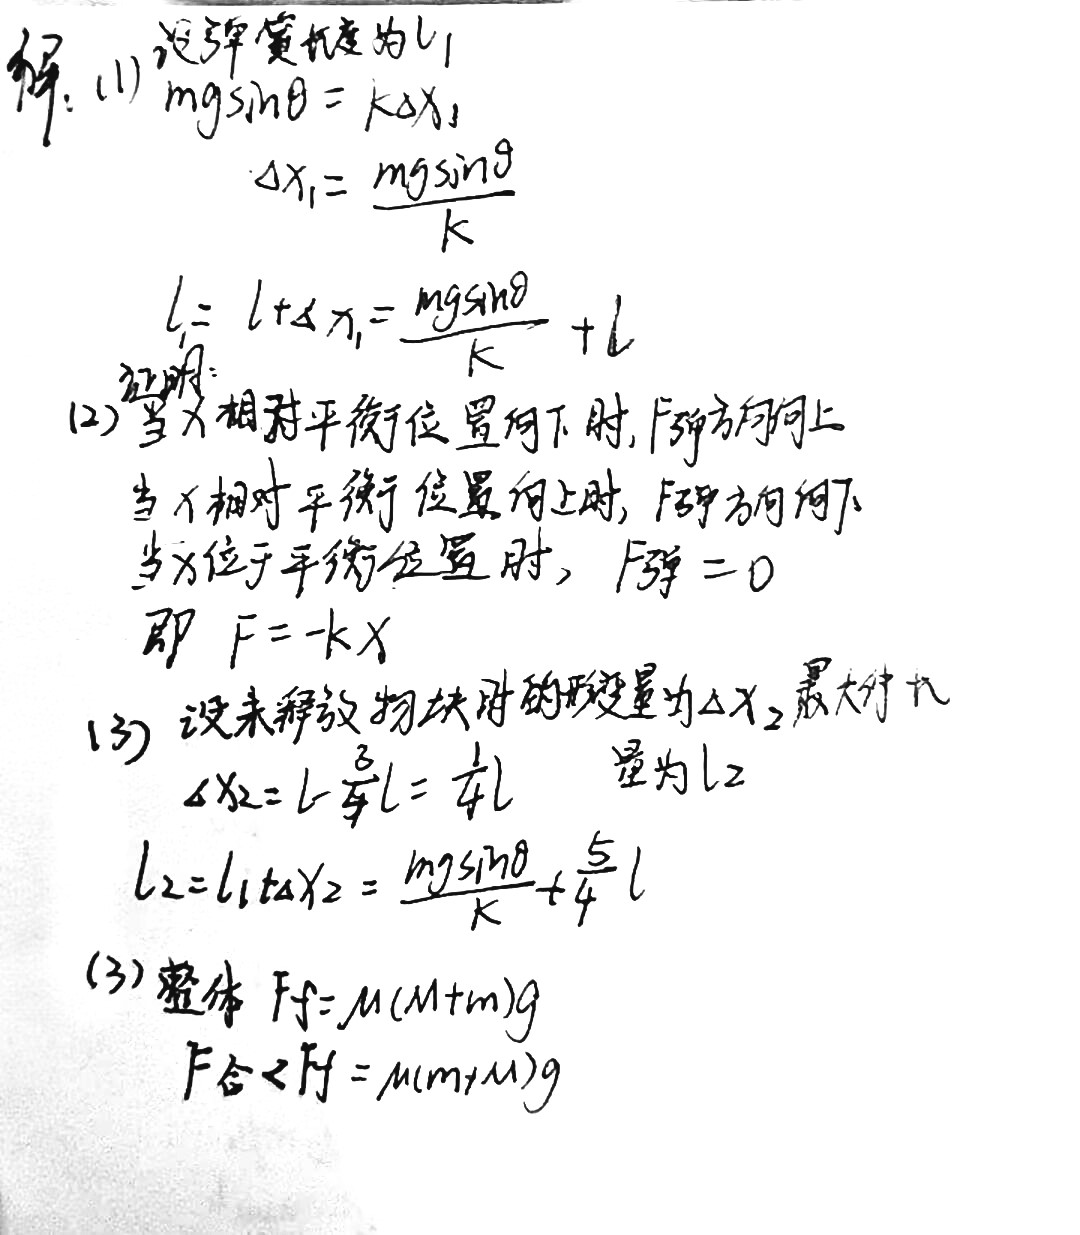 解:(1) 设弹簧长度为l₁
mgsinθ = kΔx₁
Δx₁ = mgsinθ/k
l₁ = l+Δx₁ = mgsinθ/k + l
证明:
(2) 当x相对平衡位置向下时,F弹方向向上
当x相对平衡位置向上时,F弹方向向下
当x位于平衡位置时, F弹 = 0
即 F = -kx
(3) 设未释放物块时的形变量为Δx₂ 最大伸长
量为l₂
Δx₂ = l - 3/4 l = 1/4 l
l₂ = l₁+Δx₂ = mgsinθ/k + 5/4 l
(3) 整体 Ff = μ(M+m)g
F合 < Ff = μ(m+M)g